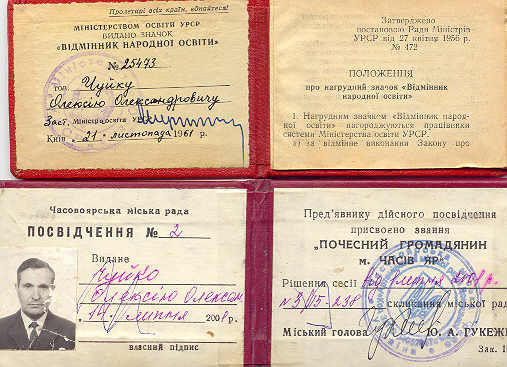 Пролетарі всіх країн, єднайтеся!
МІНІСТЕРСТВОМ ОСВІТИ УРСР
ВИДАНО ЗНАЧОК
«ВІДМІННИК НАРОДНОЇ ОСВІТИ»
№ 25473
тов. Чуйку
Олексію Олександровичу
Заст. Міністра освіти УРСР
Київ 21 листопада 1961 р.
Затверджено
постановою Ради Міністрів
УРСР від 27 квітня 1956 р.
№ 472
ПОЛОЖЕННЯ
про нагрудний значок «Відмінник
народної освіти»
1. Нагрудним значком «Відмінник народ-
ної освіти» нагороджуються працівники
системи Міністерства освіти УРСР.
а) за відмінне виконання Закону про
Часовоярська міська рада
ПОСВІДЧЕННЯ № 2
Видане
Чуйко
Олексію Олексан
14 липня 2001 р.
власний підпис
Пред'явнику дійсного посвідчення
присвоєно звання
"ПОЧЕСНИЙ ГРОМАДЯНИН
м. ЧАСІВ ЯР"
Рішення сесії від липня 2001 р.
скликання міської рад
Міський голова Ю. А. ГУКЕЖ
Зак. 1